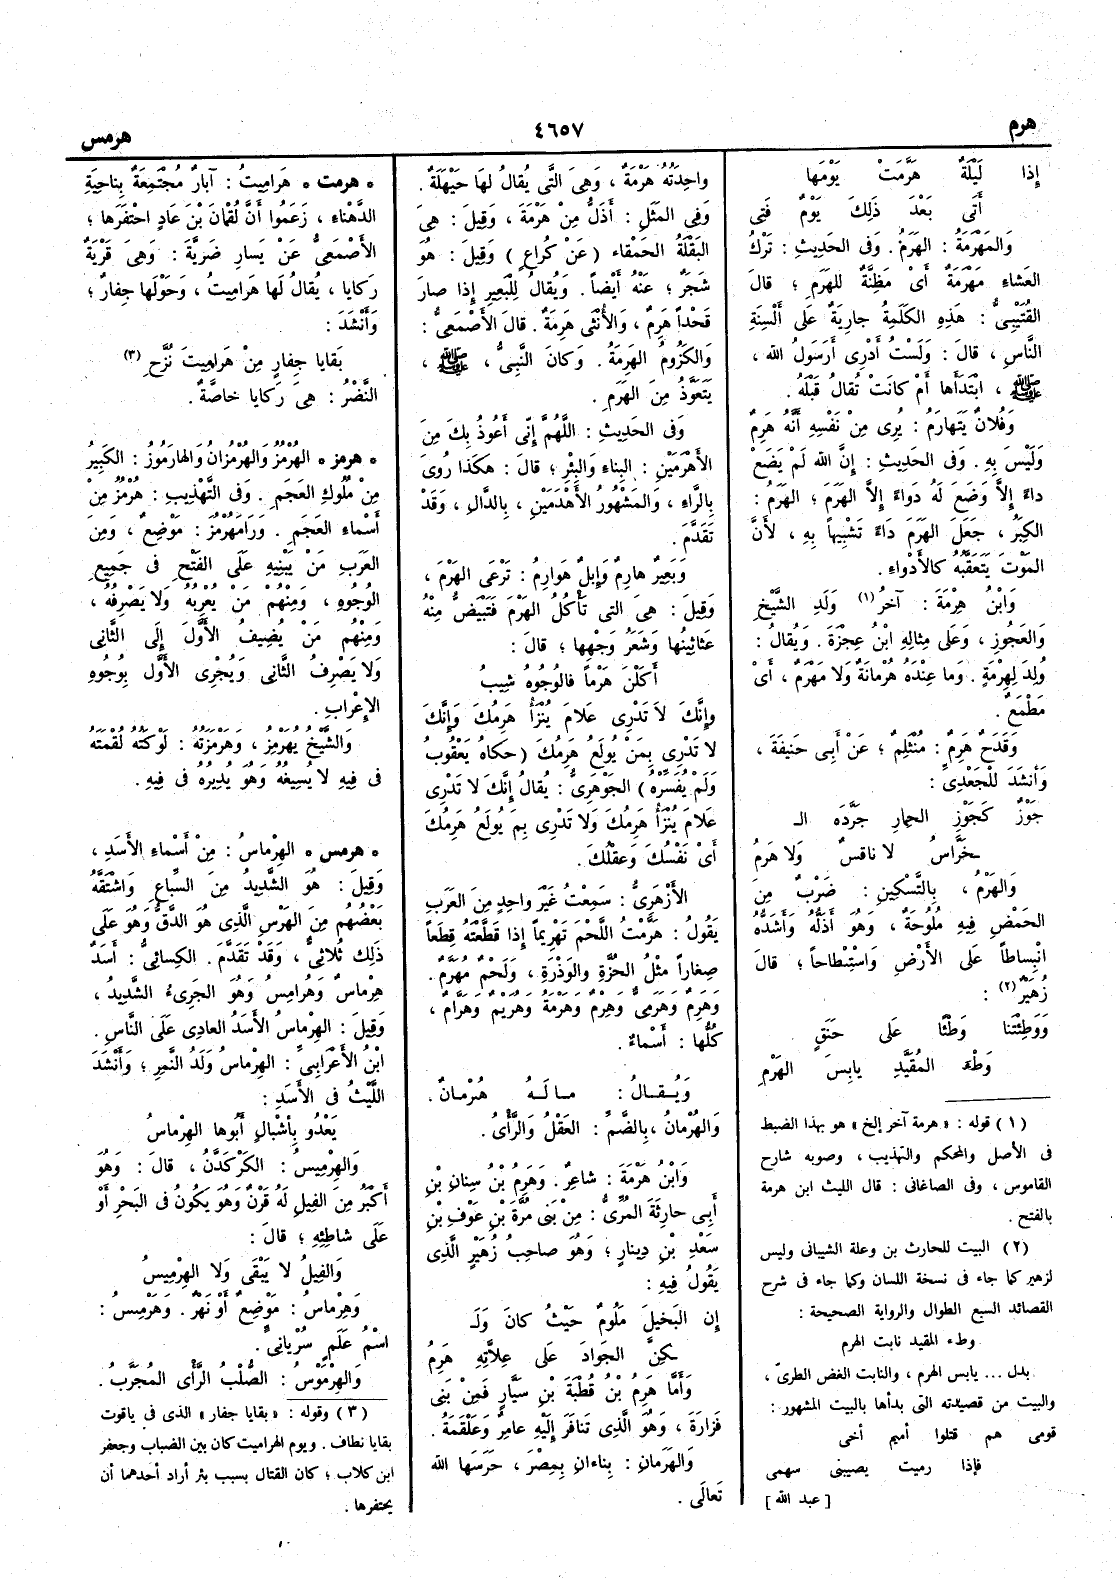 هرم
٤٦٥٧
هرمس
إِذا لَيْلَةٌ هَرَّمَتْ يَوْمَها
أَتَى بَعْدَ ذَلِكَ يَوْمٌ فَتِى
وَالمَهْرَمَةُ : الهَرَمُ . وَفى الحَدِيثِ : تَرْكُ
العَشاءِ مَهْرَمَةٌ أَىْ مَظِنَّةٌ للهَرَمِ ؛ قالَ
القُتَيْبِىُّ : هَذِهِ الكَلِمَةُ جارِيَةٌ عَلَى أَلْسِنَةِ
النَّاسِ ، قالَ : وَلَسْتُ أَدْرِى أَرَسُولُ الله ،
ﷺ ، ابْتَدَأَها أَمْ كانَتْ تُقالُ قَبْلَهُ .
وَفُلانٌ يَتَهارَمُ : يُرِى مِنْ نَفْسِهِ أَنَّهُ هَرِمٌ
وَلَيْسَ بِهِ . وَفى الحَدِيثِ : إِنَّ الله لَمْ يَضَعْ
داءً إِلاَّ وَضَعَ لَهُ دَواءً إِلاَّ الهَرَمَ ؛ الهَرَمُ :
الكِبَرُ ، جَعَلَ الهَرَمَ داءً تَشْبِيهاً بِهِ ، لأَنَّ
المَوْتَ يَتَعَقَّبُهُ كالأَدْواءِ .
وَابْنُ هِرْمَةَ : آخرُ (١) وَلَدِ الشَّيْخِ
وَالعَجُوزِ ، وَعَلَى مِثالِهِ ابْنُ عِجْزَةَ . وَيُقالُ :
وُلِدَ لِهِرْمَةٍ . وَما عِنْدَهُ هُرْمانَةٌ وَلا مَهْرَمٌ ، أَىْ
مَطْمَعٌ .
وَقَدَحٌ هَرِمٌ : مُنْثَلِمٌ ؛ عَنْ أَبِى حَنِيفَةَ ،
وَأَنْشَدَ لْلجَعْدِىِّ :
جَوْزٌ كَجَوْزِ الحِمارِ جَرَّدَه الـ
ـخَرَّاسُ لا ناقسٌ وَلا هَرِمُ
وَالهَرْمُ ، بِالتَّسْكِينِ : ضَرْبٌ مِنَ
الحَمْضِ فِيهِ مُلُوحَةٌ ، وَهُوَ أَذَلُّهُ وَأَشَدُّهُ
انْبِساطاً عَلَى الأَرْضِ وَاسْتِبْطاحاً ؛ قالَ
زُهَيْرٌ (٢) :
وَوَطِئْتَنا وَطْئًا عَلَى حَنَقٍ
وَطْءَ المُقَيَّدِ يابِسَ الهَرْمِ
(١) قوله : « هرمة آخر إلخ » هو بهذا الضبط
فى الأصل والمحكم والتهذيب ، وصوبه شارح
القاموس ، وفى الصاغانى : قال الليث ابن هرمة
بالفتح .
(٢) البيت للحارث بن وعلة الشيبانى وليس
لزهير كما جاء فى نسخة اللسان وكما جاء فى شرح
القصائد السبع الطوال والرواية الصحيحة :
وطء المقيد نابت الهرم
بدل ... يابس الهرم ، والنابت الغض الطرىّ ،
والبيت من قصيدته التى بدأها بالبيت المشهور :
قومى هم قتلوا أميم أخى
فإذا رميت يصيبنى سهمى
[ عبد الله ]
واحِدَتُهُ هَرْمَةٌ ، وَهِىَ الَّتى يُقالُ لَها حَيْهَلَةٌ .
وَفِى المَثَلِ : أَذَلُّ مِنْ هَرْمَةَ ، وَقِيلَ : هِىَ
البَقْلَةُ الحَمْقاء ( عَنْ كُراعٍ ) وَقِيلَ : هُوَ
شَجَرٌ ؛ عَنْهُ أَيْضاً . وَيُقالُ لِلْبَعِيرِ إِذا صارَ
قَحْداً هَرِمٌ ، وَالأُنْثَى هَرِمَةٌ . قالَ الأَصْمَعِىُّ :
وَالكَزُومُ الهَرِمَةُ . وَكانَ النَّبِىُّ ، ﷺ ،
يَتَعَوَّذُ مِنَ الهَرَمِ .
وَفى الحَدِيثِ : اللَّهُمَّ إِنِّى أَعُوذُ بِكَ مِنَ
الأَهْرَمَيْنِ : البِناءِ وَالبِئْرِ ؛ قالَ : هكَذا رُوِىَ
بِالرَّاءِ ، وَالمَشْهُورُ الأَهْدَمَيْنِ ، بِالدَّالِ ، وَقَدْ
تَقَدَّمَ .
وَبَعِيرٌ هارِمٌ وَإِبِلٌ هَوارِمُ : تَرْعَى الهَرْمَ ،
وَقِيلَ : هِىَ التى تَأْكُلُ الهَرْمَ فَتَبْيَضُّ مِنْهُ
عَثانِينُها وَشَعَرُ وَجْهِها ؛ قالَ :
أَكَلْنَ هَرْماً فالْوُجُوهُ شِيبُ
وإِنَّكَ لاَ تَدْرِى عَلامَ يُنْزَأُ هَرِمُكَ وَإِنَّكَ
لا تَدْرِى بِمَنْ يُولَعُ هَرِمُكَ ( حَكاهُ يَعْقُوبُ
وَلَمْ يُفَسِّرْهُ ) الجَوْهَرِىُّ : يُقالُ إِنَّكَ لا تَدْرِى
عَلامَ يُنْزَأُ هَرِمُكَ وَلا تَدْرِى بِمَ يُولَعُ هَرِمُكَ
أَىْ نَفْسُكَ وَعَقْلُكَ .
الأَزْهَرِىُّ : سَمِعْتُ غَيْرَ واحِدٍ مِنَ العَرَبِ
يَقُولُ : هَرَّمْتُ اللَّحْمَ تَهْرِيماً إِذا قَطَّعْتَهُ قِطَعاً
صِغاراً مِثْلَ الحُزَّةِ وَالوَذْرَةِ ، وَلَحْمٌ مُهَرَّمٌ .
وَهَرِمٌ وَهَرَمِىٌّ وَهِرْمٌ وَهَرْمَةُ وَهُرَيْمٌ وَهَرَّامٌ ،
كُلُّها : أَسْماءٌ .
وَيُـقـالُ : مـا لَـهُ هُرْمـانٌ .
وَالهُرْمانُ ، بِالضَّمِّ : العَقْلُ وَالرَّأْىُ .
وَابْنُ هَرْمَةَ : شاعِرٌ . وَهَرِمُ بْنُ سِنانِ بْنِ
أَبِى حارِثَةَ المُرِّىُّ : مِنْ بَنِى مُرَّةَ بْنِ عَوْفِ بْنِ
سَعْدِ بْنِ دِينارٍ ؛ وَهُوَ صاحِبُ زُهَيْرٍ الَّذِى
يَقُولُ فِيهِ :
إِن البَخِيلَ مَلُومٌ حَيْثُ كانَ وَلَـ
ـكِنَّ الجَوادَ عَلَى عِلاَّتِهِ هَرِمُ
وَأَمَّا هَرِمُ بْنُ قُطْبَةَ بْنِ سَيَّارٍ فَمِنْ بَنِى
فَزارَةَ ، وَهُوَ الَّذِى تَنافَرَ إِلَيْهِ عامِرٌ وَعَلْقَمَةُ .
وَالهَرَمانِ : بِناءانِ بِمِصْرَ ، حَرَسَها الله
تَعالَى .
• هرمت • هَرامِيتُ : آبارٌ مُجْتَمِعَةٌ بِناحِيَةِ
الدَّهْناءِ ، زَعَمُوا أَنَّ لُقْمانَ بْنَ عادٍ احْتَفَرَها ؛
الأَصْمَعِىُّ عَنْ يَسارِ ضَرِيَّةَ : وَهِىَ قَرْيَةٌ
رَكايا ، يُقالُ لَها هَرامِيتُ ، وَحَوْلَها جِفارٌ ؛
وَأَنْشَدَ :
بَقايا جِفارٍ مِنْ هَرامِيتَ نُزَّحِ (٣)
النَّضْرُ : هِىَ رَكايا خاصَّةٌ .
• هرمز • الهُرْمُزُ وَالهُرْمُزانُ وَالهارَمُوزُ : الكَبِيرُ
مِنْ مُلُوكِ العَجَمِ . وَفى التَّهْذِيبِ : هُرْمُزُ مِنْ
أَسْماءِ العَجَمِ . وَرَامَهُرْمُزُ : مَوْضِعٌ ، وَمِنَ
العَرَبِ مَنْ يَبْنِيهِ عَلَى الفَتْحِ فى جَمِيعِ
الوُجُوهِ ، وَمِنْهُمْ مَنْ يُعْرِبُهُ وَلا يَصْرِفُهُ ،
وَمِنْهُم مَنْ يُضِيفُ الأَوَّلَ إِلَى الثَّانِى
وَلا يَصْرِفُ الثَّانِى وَيُجْرِى الأَوَّلَ بِوُجُوهِ
الإِعْرابِ .
وَالشَّيْخُ يُهَرْمِزُ ، وَهَرْمَزَتُهُ : لَوْكَتُهُ لُقْمَتَهُ
فى فِيهِ لا يُسِيغُهُ وَهُوَ يُدِيرُهُ فى فِيهِ .
• هرمس • الهِرْماسُ : مِنْ أَسْماءِ الأَسَدِ ،
وَقِيلَ : هُوَ الشَّدِيدُ مِنَ السِّباعِ وَاشْتَقَّهُ
بَعْضُهُم مِنَ الهَرْسِ الَّذِى هُوَ الدَّقُّ وَهُوَ عَلَى
ذَلِكَ ثُلاثِىٌّ ، وَقَدْ تَقَدَّمَ . الكِسائِىُّ : أَسَدٌ
هِرْماسٌ وَهُرامِسٌ وَهُوَ الجَرِىءُ الشَّدِيدُ ،
وَقِيلَ : الهِرْماسُ الأَسَدُ العادِى عَلَى النَّاسِ .
ابْنُ الأَعْرابِىِّ : الهِرْماسُ وَلَدُ النَّمِرِ ؛ وَأَنْشَدَ
اللَّيْثُ فى الأَسَدِ :
يَعْدُو بِأَشْبالٍ أَبُوها الهِرْماسُ
وَالهِرْمِيسُ : الكَرْكَدَّنُ ، قالَ : وَهُوَ
أَكْبَرُ مِنَ الفِيلِ لَهُ قَرْنٌ وَهُوَ يَكُونُ فى البَحْرِ أَوْ
عَلَى شاطِئِهِ ؛ قالَ :
وَالفِيلُ لا يَبْقَى وَلا الهِرْمِيسُ
وَهِرْماسُ : مَوْضِعٌ أَوْ نَهْرٌ . وَهَرْمِسُ :
اسْمُ عَلَمٍ سُرْيانِىٌّ .
وَالهِرْمَوْسُ : الصُّلْبُ الرَّأْىِ المُجَرَّبُ .
(٣) وقوله : « بقايا جفار » الذى فى ياقوت
بقايا نطاف . ويوم الهراميت كان بين الضباب وجعفر
ابن كلاب ؛ كان القتال بسبب بئر أراد أحدهما أن
يحتفرها .